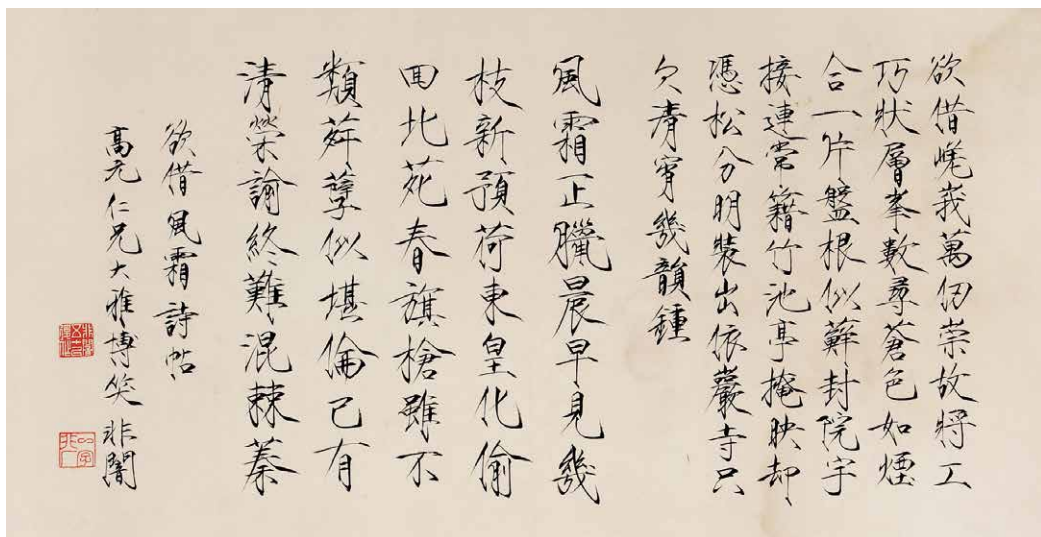 欲借嶢峩萬仞崇故將工
巧狀層峯數尋蒼色如煙
合一片盤根似蘚封院宇
接連常籍竹池亭掩映却
憑松分明裝出依巖寺只
欠清宵幾韻鍾
風霜正臘晨早見幾
枝新預荷東皇化偷
回北苑春旗槍雖不
類荈孽似堪倫已有
清榮諭終難混棘蓁
欲借風霜詩帖
高元仁兄大雅博笑非闇